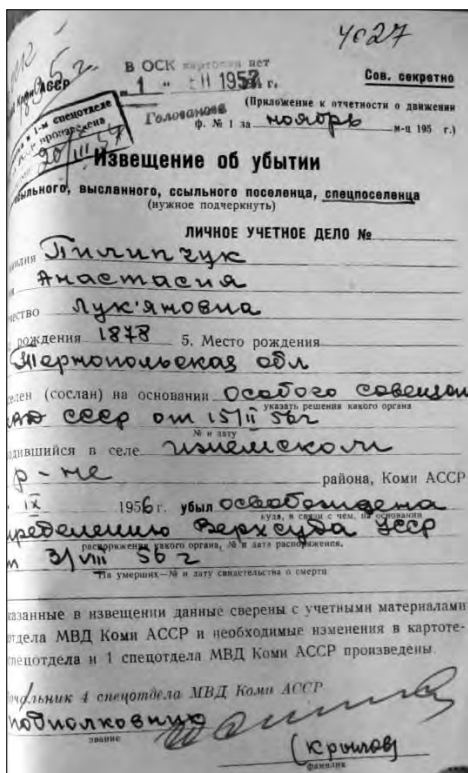 4027
В ОСК картотеки нет
Коми АССР
„ 1 “ II 1957 г.
Сов. секретно
Голованова
(Приложение к отчетности о движении
ф. № 1 за ноябрь м-ц 195 г.)
1-м спецотделе
20/III 57
Извещение об убытии
ыльного, высланного, ссыльного поселенца, спецпоселенца
(нужное подчеркнуть)
ЛИЧНОЕ УЧЕТНОЕ ДЕЛО №
милия Пилипчук
Анастасия
чество Лук'яновна
рождения 1878 5. Место рождения
Тернопольская обл
елен (сослан) на основании Особого совещан
указать решения какого органа
СССР от 15/II 56 г
№ и дату
одившийся в селе
р-не района, Коми АССР
IX 1956 г. убыл освобождена
куда, в связи с чем, на основании
пределению Верхсуда УССР
распоряжения какого органа, № и дата распоряжения.
т 3/VIII 56 г
На умерших—№ и дату свидетельства о смерти
казанные в извещении данные сверены с учетными материалами
отдела МВД Коми АССР и необходимые изменения в картоте-
спецотдела и 1 спецотдела МВД Коми АССР произведены.
Начальник 4 спецотдела МВД Коми АССР
подполковник
звание
(Крылов)
фамилия